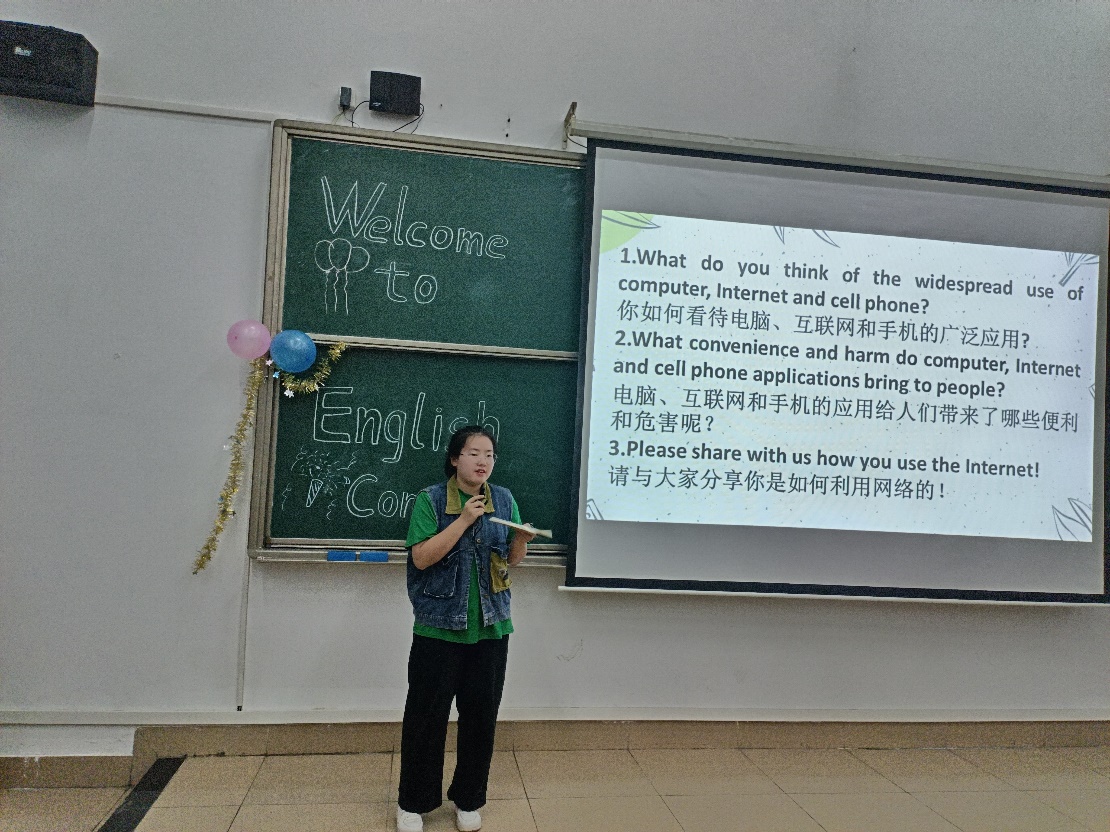 Welcome
to
English
1.What do you think of the widespread use of
computer, Internet and cell phone?
你如何看待电脑、互联网和手机的广泛应用?
2.What convenience and harm do computer, Internet
and cell phone applications bring to people?
电脑、互联网和手机的应用给人们带来了哪些便利
和危害呢？
3.Please share with us how you use the Internet!
请与大家分享你是如何利用网络的！